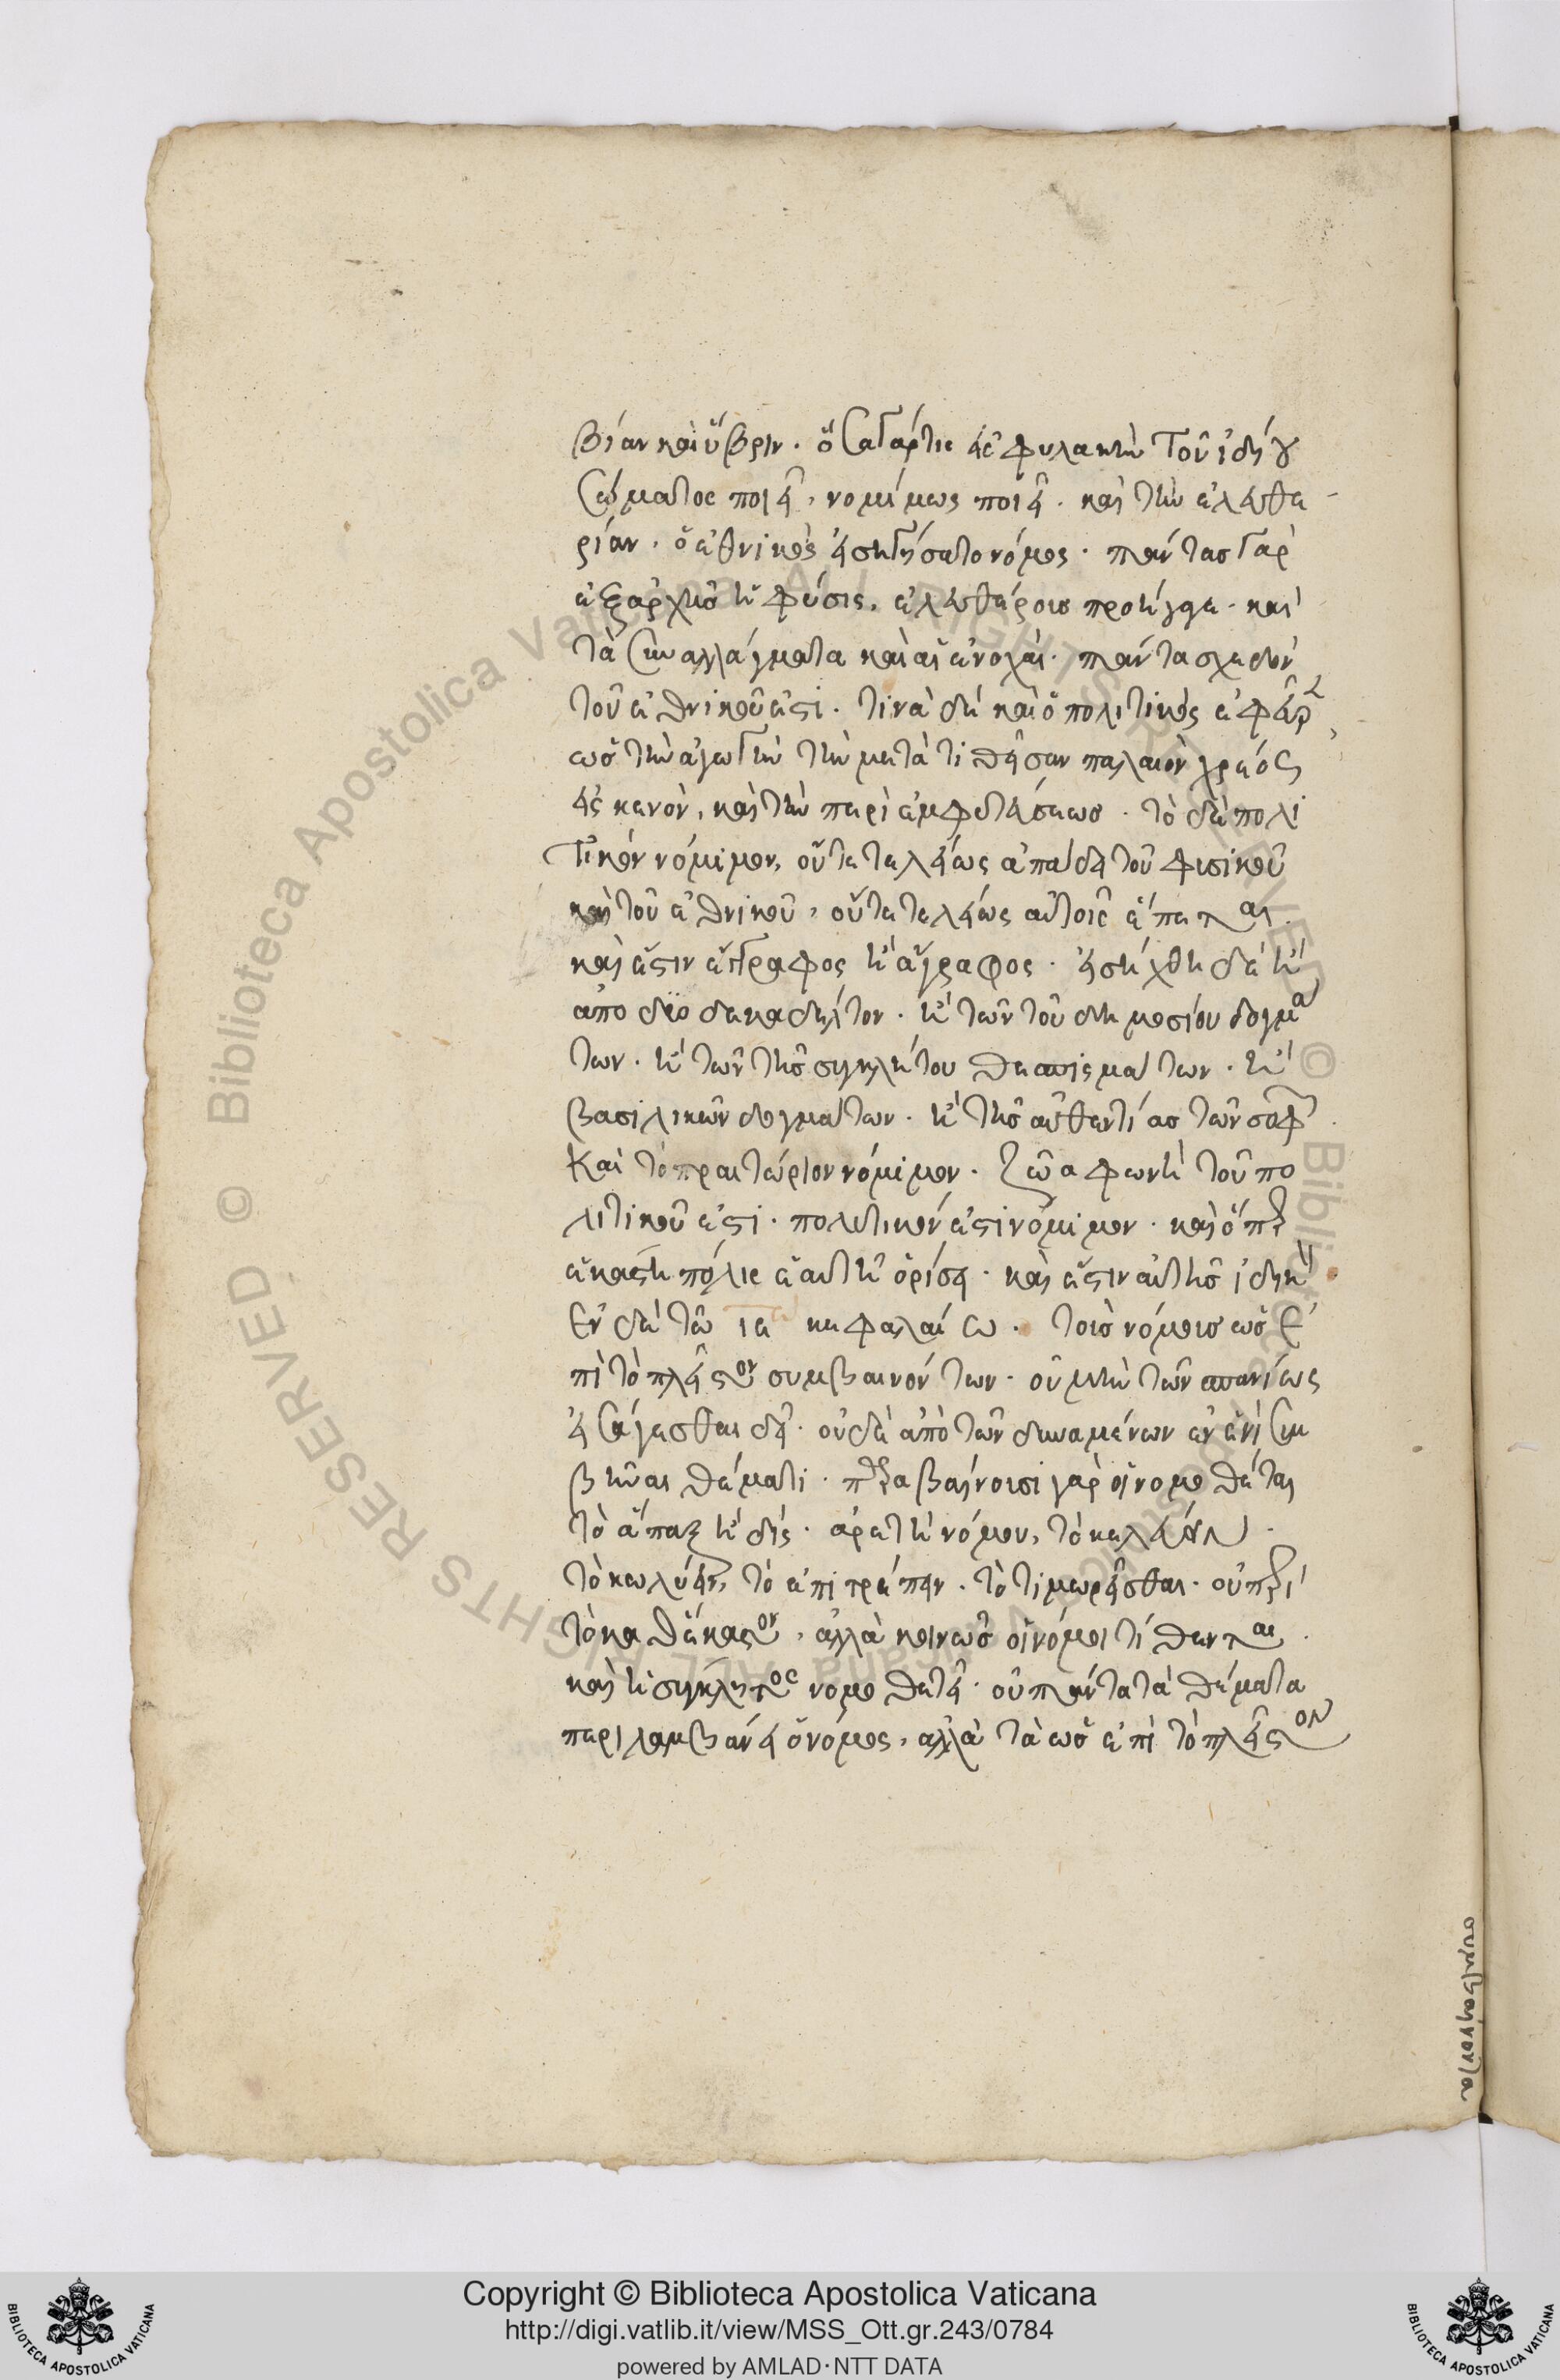 βίαν καὶ ὕβριν. ὃ ἐὰν γάρ τις εἰς φυλακὴν τοῦ ἰδίου
σώματος ποιεῖ, νομίμως ποιεῖ. καὶ τὴν ἐλευθε-
ρίαν. ὁ ἐθνικὸς εἰσηγήσατο νόμος. πάντας γὰρ
ἐξαρχῆς ἡ φύσις, ἐλευθέρους προήγαγε. καὶ
τὰ συναλλάγματα καὶ αἱ ἐνοχαὶ. πάντα σχεδὸν
τοῦ ἐθνικοῦ ἐστι. τινὰ δὲ καὶ ὁ πολιτικὸς ἐφεῦρ
ὡς τὴν ἀγωγὴν τὴν μετατιθεῖσαν παλαιὸν χρέος
εἰς καινὸν, καὶ τὴν περὶ ἐμφυτεύσεως. τὸ δὲ πολι
τικὸν νόμιμον, οὔτε τελείως ἀπάδει τοῦ φυσικοῦ
καὶ τοῦ ἐθνικοῦ, οὔτε τελείως αὐτοῖς ἕπεται.
καὶ ἔστιν ἔγγραφος ἢ ἄγραφος. εἰσήχθη δὲ ἢ
ἀπὸ δυοδεκαδέλτου. ἢ τῶν τοῦ δημοσίου δογμά
των. ἢ τῶν τῆς συγκλήτου θεσπισμάτων. ἢ
βασιλικῶν δογμάτων. ἢ τῆς αὐθεντίας τῶν σοφ
Καὶ τὸ πραιτώριον νόμιμον. ζῶσα φωνὴ τοῦ πο
λιτικοῦ ἐστι. πολιτικόν ἐστι νόμιμον. καὶ ὅπερ
ἑκάστη πόλις ἑαυτῇ ὁρίσει. καὶ ἔστιν αὐτῆς ἰδικὴ
Ἐν δὲ τῷ ια κεφαλαίω. τοῖς νόμοις ὡς ἐ
πὶ τὸ πλεῖστον συμβαινόντων. οὐ μὴν τῶν σπανίως
εἰσάγεσθαι δεῖ. οὐδὲ ἀπὸ τῶν δυναμένων ἐν ἑνὶ συμ
βῆναι θέματι. παραβαίνουσι γὰρ οἱ νομοθέται
τὸ ἅπαξ ἢ δίς. ἀρετὴ νόμου, τὸ κελεύειν.
τὸ κωλύειν, τὸ ἐπιτρέπειν. τὸ τιμωρεῖσθαι. οὐ περὶ
τὸ καθέκαστον, ἀλλὰ κοινῶς οἱ νόμοι τίθενται.
καὶ ἡ σύγκλητος νομοθετεῖ. οὐ πάντα τὰ θέματα
περιλαμβάνει ὁ νόμος, ἀλλὰ τὰ ὡς ἐπὶ τὸ πλεῖστον
συμβαίνοντα
Copyright © Biblioteca Apostolica Vaticana
http://digi.vatlib.it/view/MSS_Ott.gr.243/0784
powered by AMLAD·NTT DATA